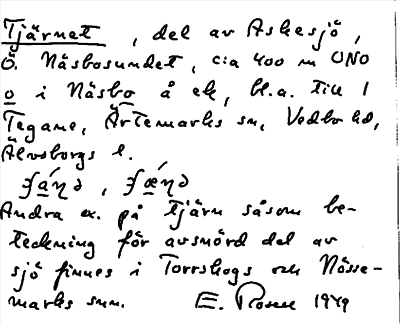 Tjärnet, del av Askesjö,
Ö. Näsbosundet, c:a 400 m ONO
o i Näsbo å ek, bl.a. till 1
Tegane, Ärtemarks sn, Vedbo hd,
Älvsborgs l.
Andra ex. på tjärn såsom be-
teckning för avsnörd del av
sjö finnes i Torrskogs och Nösse-
marks snn. E. Rosell 1949